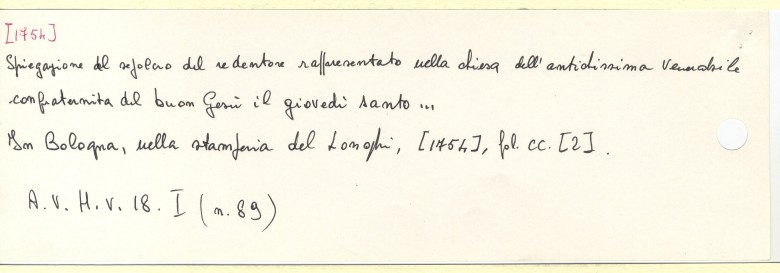 [1754]
Spiegazione del sepolcro del redentore rappresentato nella chiesa dell'antichissima Venerabile
confraternita del buon Gesù il giovedì santo ...
In Bologna, nella stamperia del Longhi, [1754], fol. cc. [2].
A.V. H.V. 18. I (n. 89)